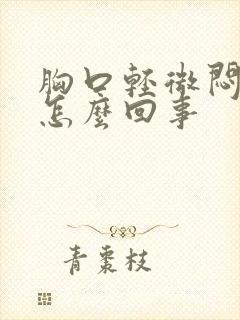 胸口輕微悶
怎麼回事
青棗枝